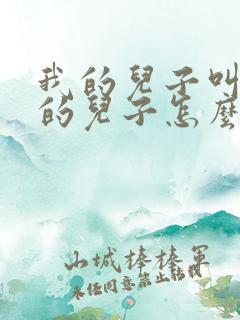 我的兒子叫
的兒子怎麼
山城棒棒軍
未任同意禁止転載